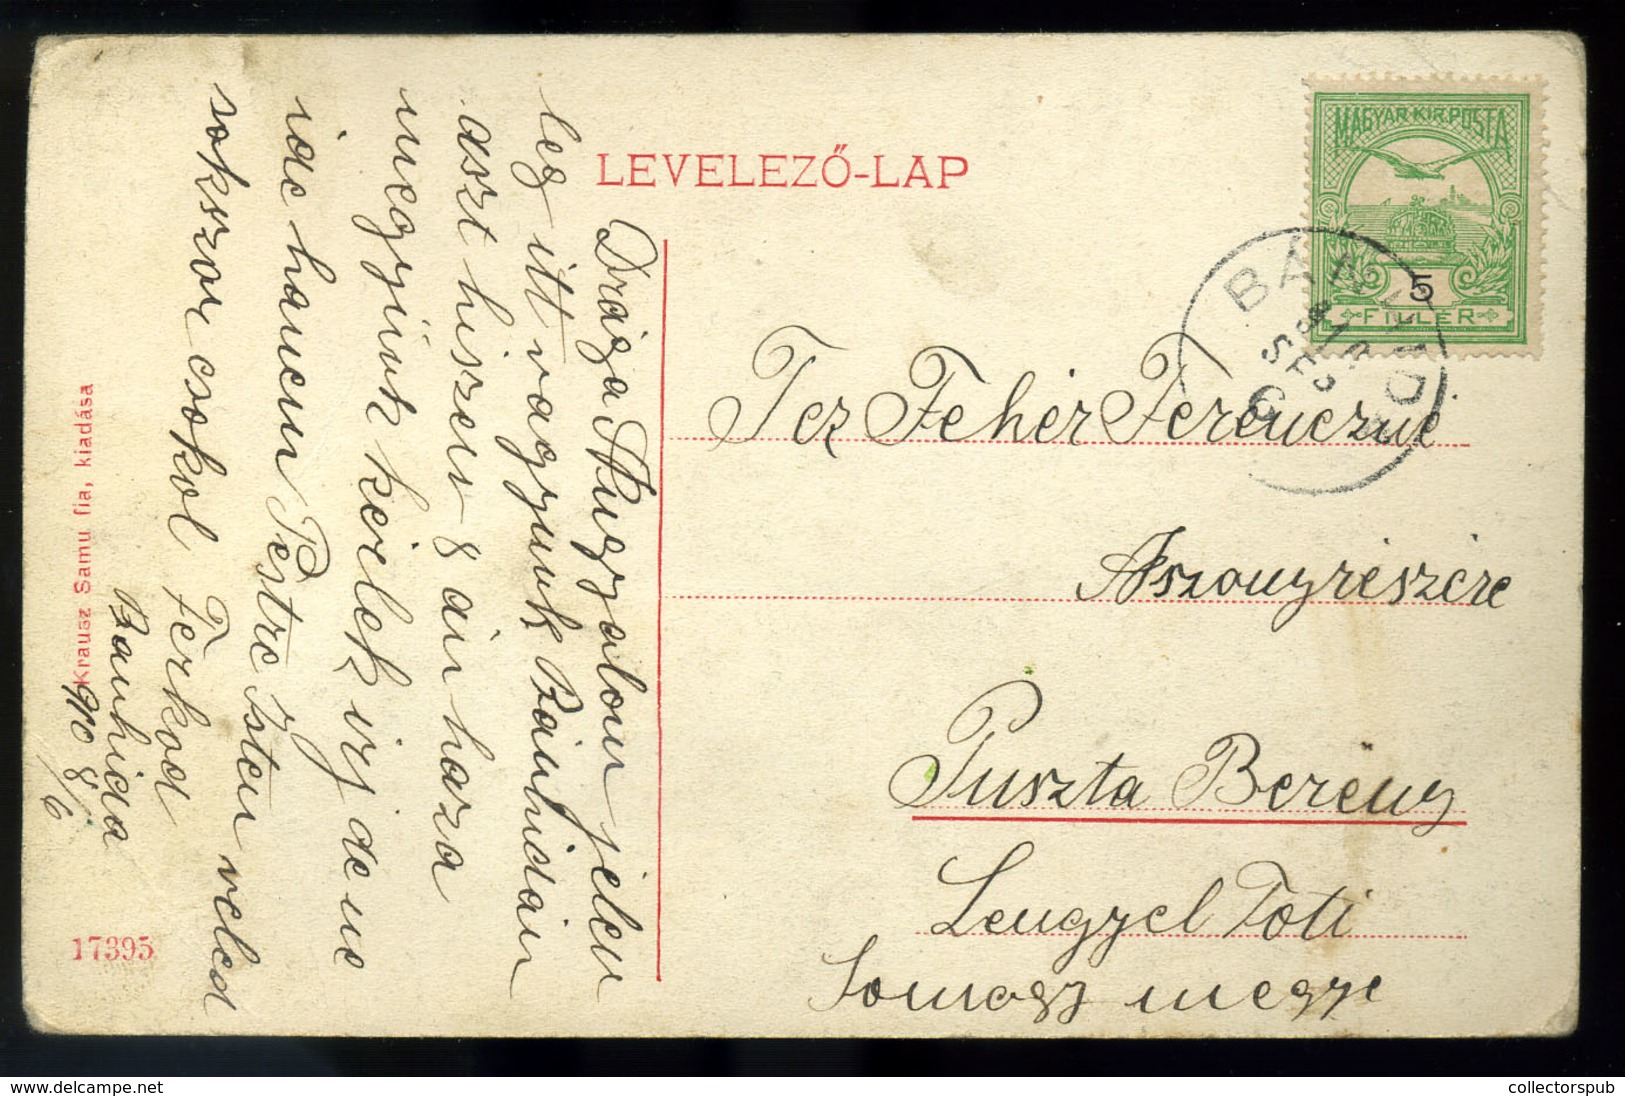 LEVELEZŐ-LAP
MAGYAR KIR. POSTA
5
FILLÉR
BÁNHIDA
Tez Fehér Ferenczné
Aszonyrészére
Puszta Berény
Lengyel Toti
Somogy megye
Drága Angyalom jelen
leg itt vagyunk Bánhidán
aszt hiszem 8 án haza
megyünk kérlek irj de ne
ide hanem Pestre Isten veled
sokszor csokol Ferkod
Banhida
910 8/6
Krausz Samu fia, kiadása
17395
delcampe.net
collectorspub